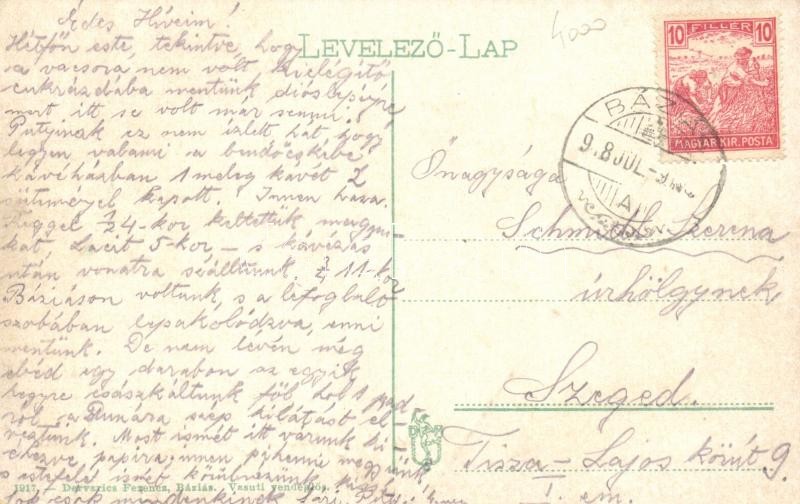 Édes Híveim!
Hétfőn este, tekintve, hogy
a vacsora nem volt kielégítő
cukrázdába mentünk dióslepényre
mert itt se volt már semmi.
Putyinak ez nem izlett hát hogy
legyen valami a bendőcskébe
kávéházban 1 meleg kávét 2
süteménnyel kapott. Innen haza.
Reggel ½4-kor keltettük
Lacit 5-kor – s kávézás
után vonatra szálltunk. ¾ 11-kor
Báziáson voltunk, s a lefoglalt
szobában lepakolódzva, enni
mentünk. De nem lévén még
ebéd egy darabon az egyik
hegyre császkáltunk föl, hol 1 pad
ról a Dunára szép kilátást él
veztünk. Most ismét itt varunk ki
éhezve papíra, innen pihenni megyünk
s estefelé ismét körülnézünk
csók mindenkinek Sári
LEVELEZŐ-LAP
4000
10 FILLÉR 10
MAGYAR KIR. POSTA
BÁZI
9.8 JUL.
A
Önagysága
Schmidt Szerena
úrhölgynek
Szeged.
Tisza-Lajos körút 9.
I. em.
1917. — Dervarics Ferencz, Báziás. — Vasuti vendéglős.